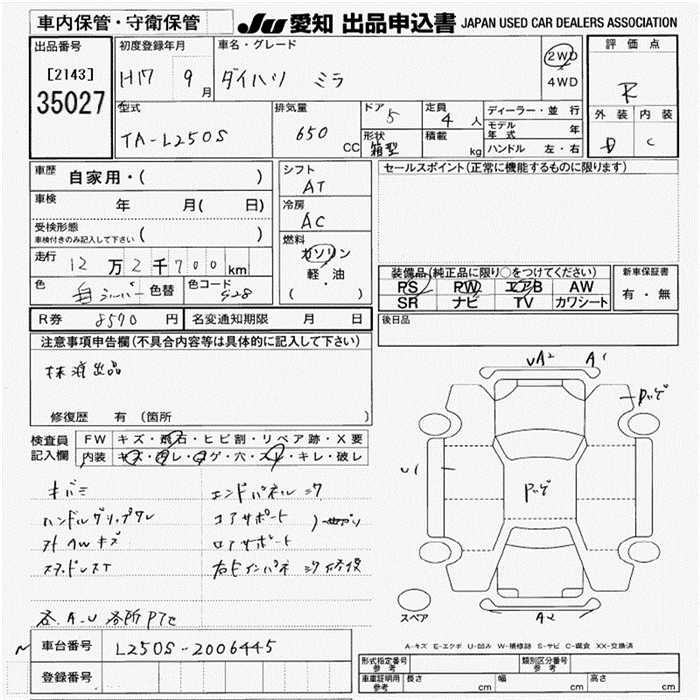 車内保管・守衛保管
JU 愛知 出品申込書 JAPAN USED CAR DEALERS ASSOCIATION
出品番号
[2143]
35027
初度登録年月
H17 9月
車名・グレード
ダイハツ ミラ
2WD
4WD
評価点
R
外装 内装
D C
型式
TA-L250S
排気量
650 CC
ドア 5
定員 4人
形状 箱型
積載 kg
ディーラー・並行
モデル年式 年
ハンドル 左・右
車歴 自家用・( )
車検 年 月( 日)
受検形態
車検付きのみ記入して下さい ( )
走行 12万2千700km
色 シルバー 色替 色コード S28
シフト
AT
冷房
AC
燃料
ガソリン
軽・油
( )
セールスポイント(正常に機能するものに限ります)
装備品(純正品に限り○をつけてください)
PS PW エアB AW
SR ナビ TV カワシート
新車保証書
有・無
R券 8570円 名変通知期限 月 日
後日品
注意事項申告欄(不具合内容等は具体的に記入して下さい)
抹消出品
修復歴 有 (箇所 )
検査員記入欄
FW キズ・飛石・ヒビ割・リペア跡・X要
内装 キズ・汚レ・コゲ・穴・スレ・キレ・破レ
キバミ
ハンドルグリップスレ
エンドパネル
コアサポート
ロアサポート
各.A.U 各所
UA2 A1
U1
A2
スペア
A-キズ E-エクボ U-凹み W-補修跡 S-サビ C-腐食 XX-交換済
車台番号 L250S-2006445
登録番号
形式指定番号 参考
類別区分番号 参考
車庫証明用 参考 長さ cm 幅 cm 高さ cm